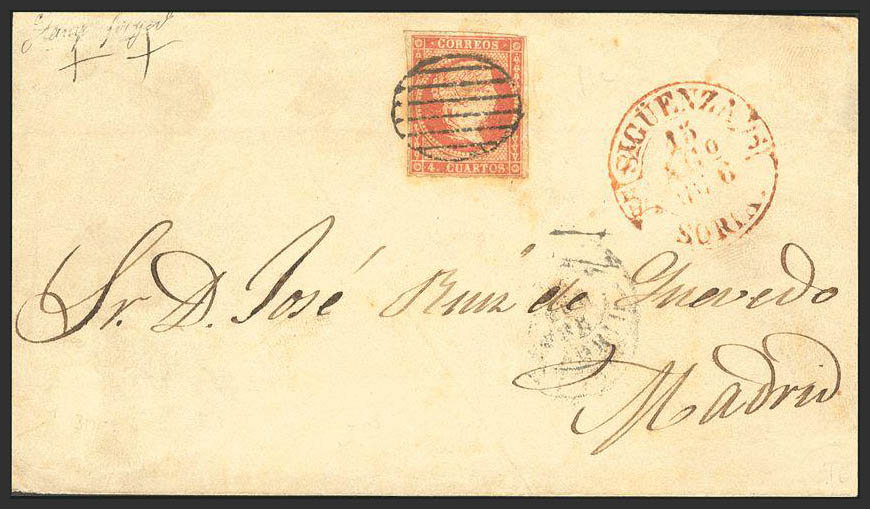 Stamp forged
CORREOS
4 CUARTOS
SIGÜENZA
15
AGO
6
SORIA.
Sr. D. José Ruiz de Quevedo
Madrid